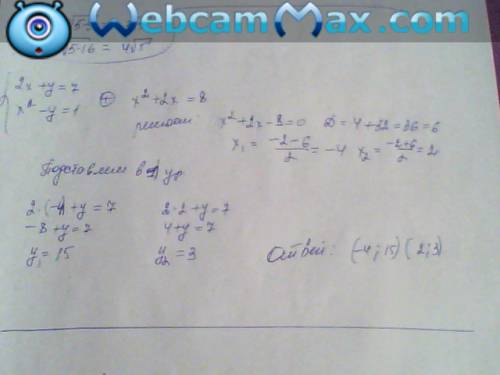 WebcamMax.com
√5·16 = 4√5
2x+y=7
x²-y=1 ⊕ x²+2x=8
решаем: x²+2x-8=0 D=4+32=36=6
x₁= (-2-6)/2 =-4 x₂= (-2+6)/2 =2
Подставим в 1) ур
2·(-4)+y=7 2·2+y=7
-8+y=7 4+y=7
y₁=15 y₂=3
Ответ: (-4;15) (2;3)